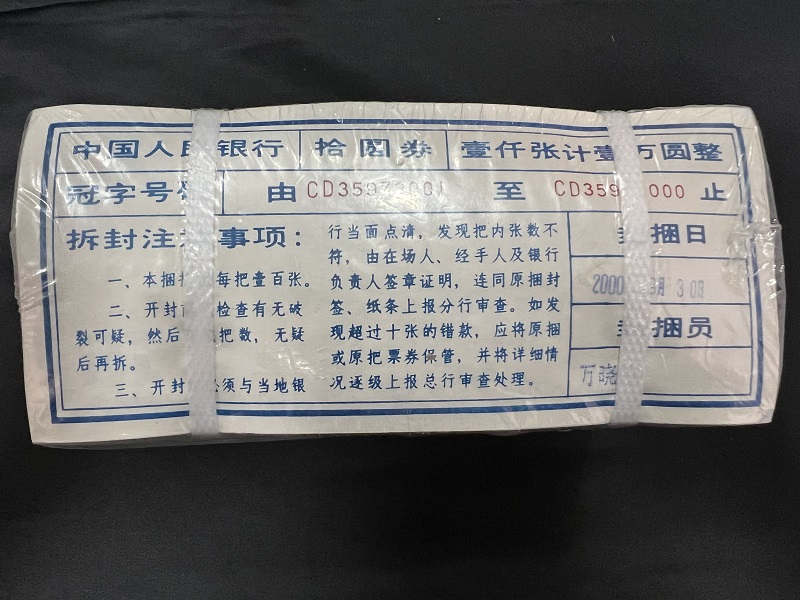 中国人民银行 拾圆券 壹仟张计壹万圆整
冠字号 由 CD35973001 至 CD359 000 止
拆封注 事项:
一、本捆 每把壹百张。
二、开封 检查有无破
裂可疑,然后 把数,无疑
后再拆。
三、开封 须与当地银
行当面点清,发现把内张数不
符,由在场人、经手人及银行
负责人签章证明,连同原捆封
签、纸条上报分行审查。如发
现超过十张的错款,应将原捆
或原把票券保管,并将详细情
况逐级上报总行审查处理。
封捆日
2000 月30日
封捆员
万晓